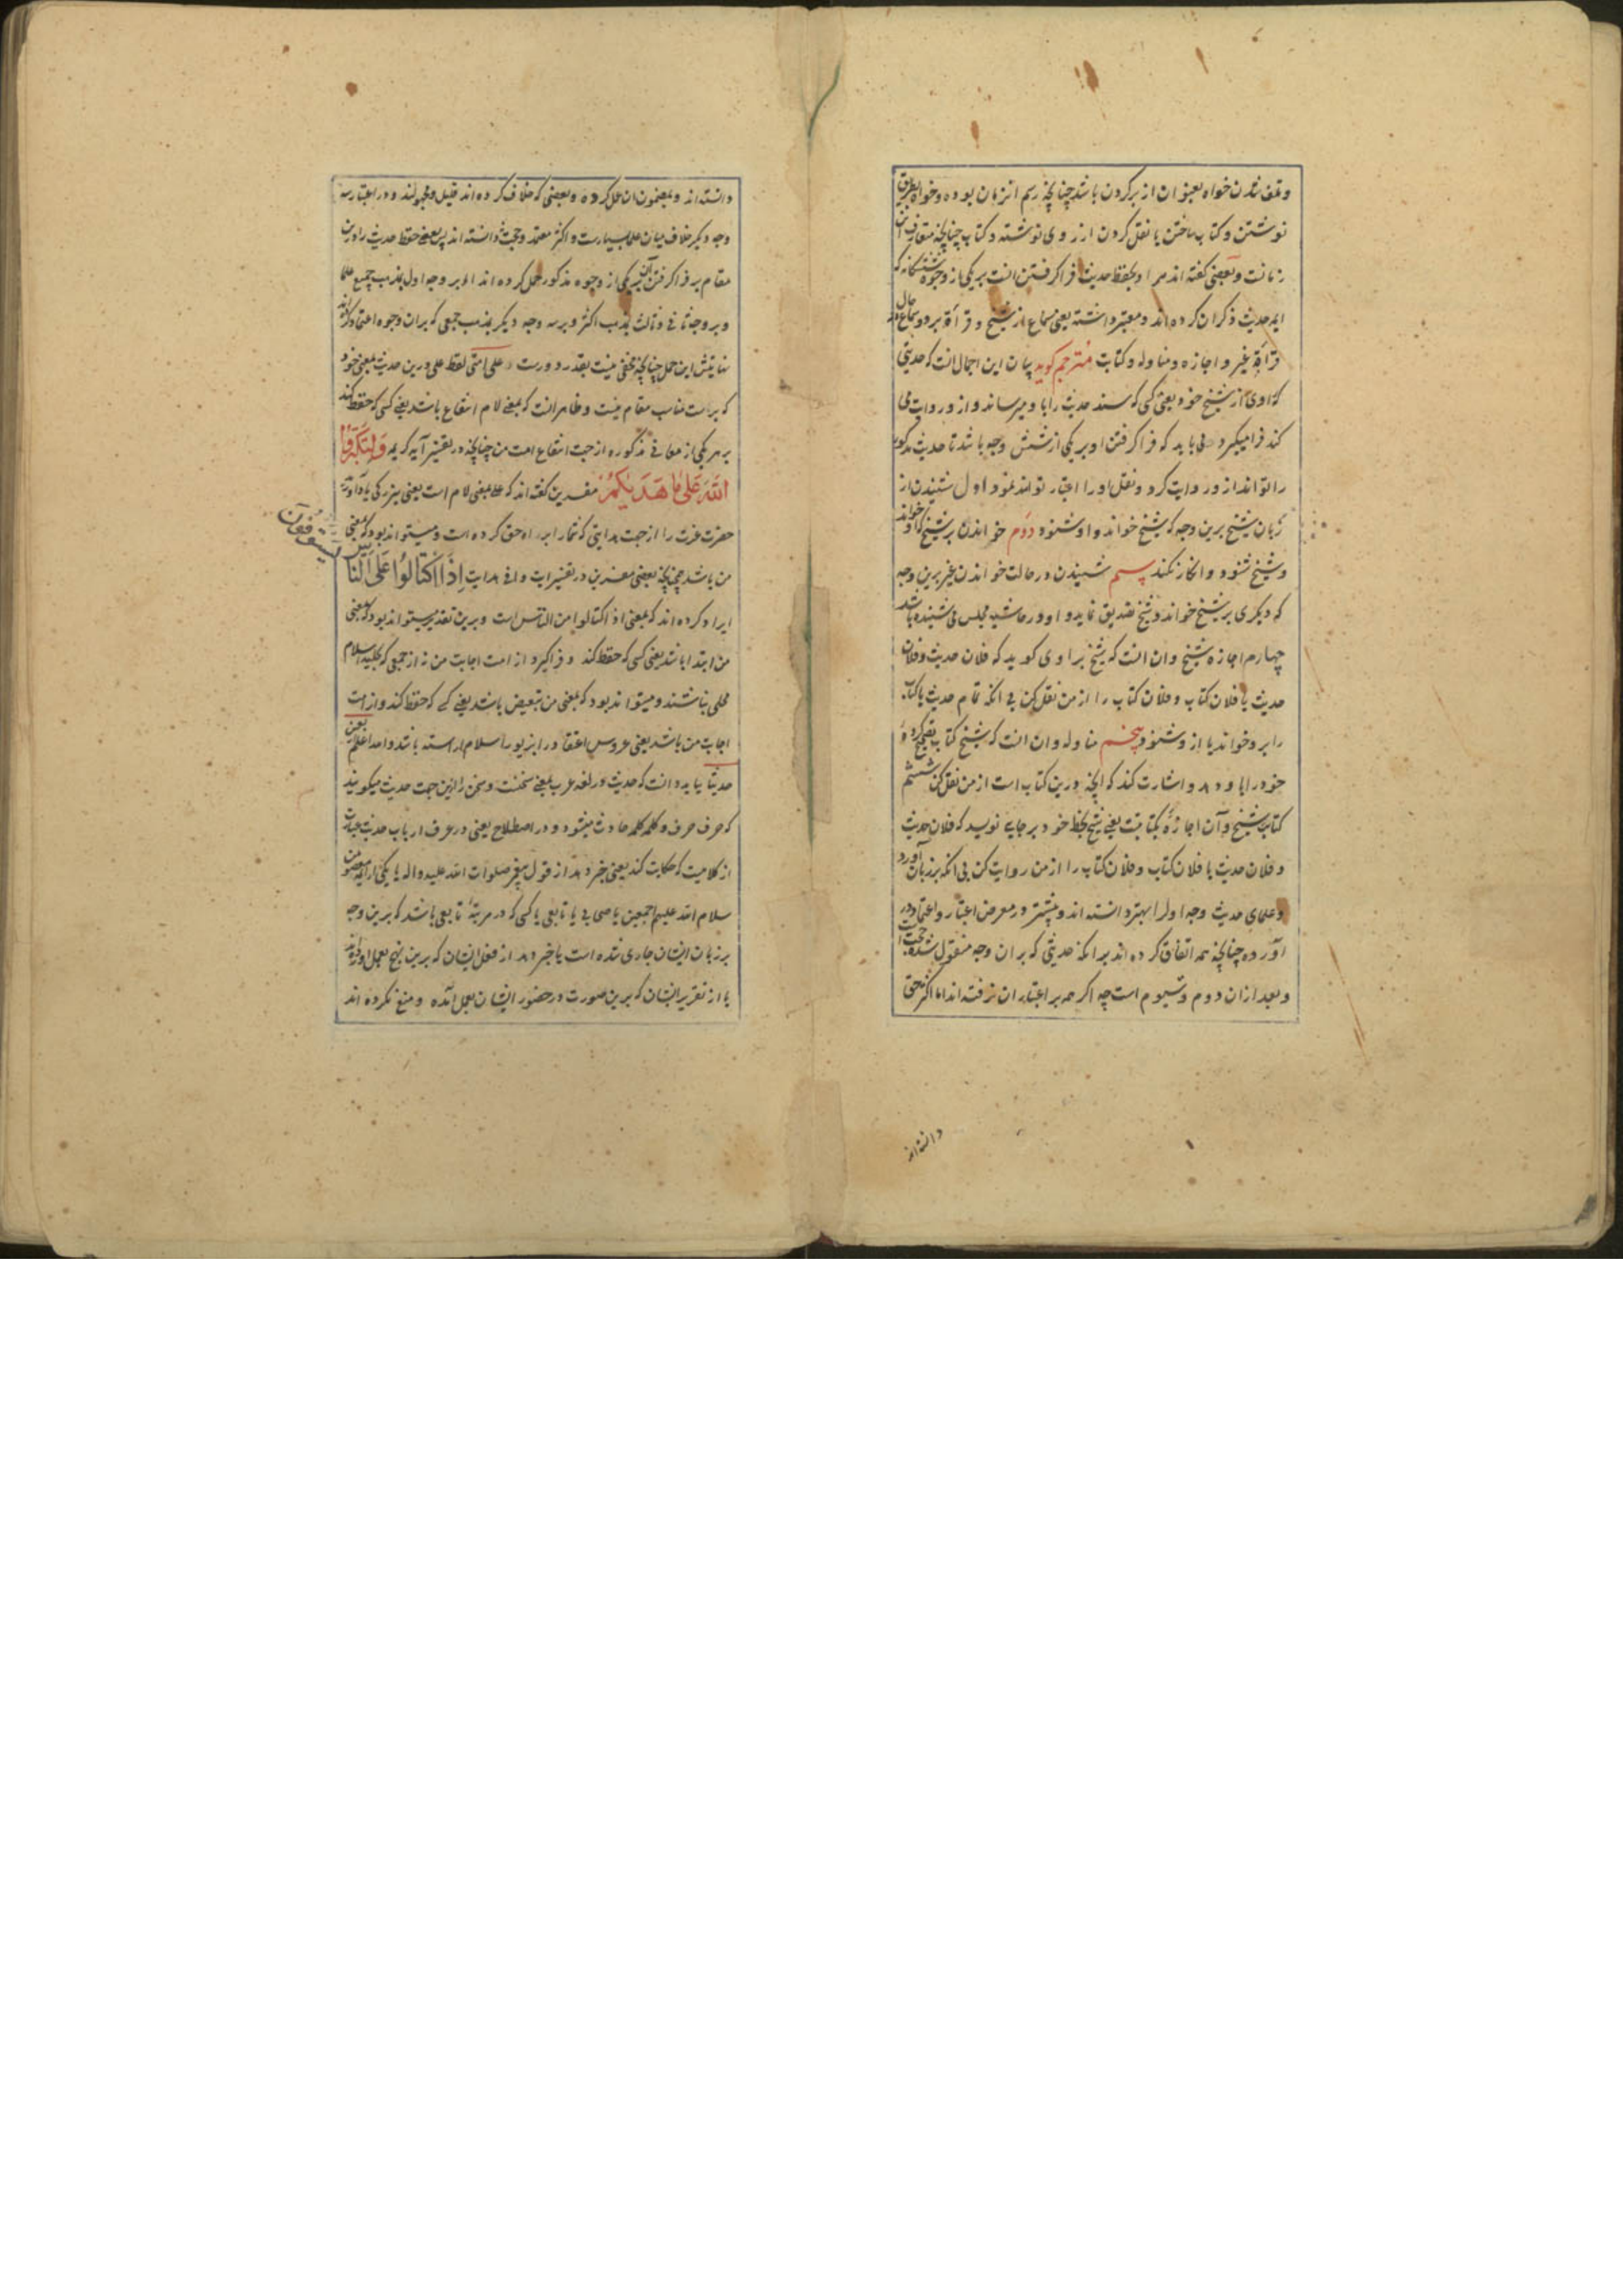 و تلف شدن خواه بعنوان از بر کردن باشد چنانچه رسم انزمان بوده و خواه بطریق
نوشتن و کتاب ساختن یا نقل کردن از روی نوشته و کتاب چنانچه متعارف این
زمانست و بعضی گفته اند مراد بحفظ حدیث فرا گرفتن انست بر یکی از وجوه ششکانه که
ایمه حدیث ذکر ان کرده اند و معتبر دانسته یعنی سماع از شیخ و قرأة بر او و سماع حال
قرأة غیر و اجازه و مناوله و کتابت مترجم کوید بیان این اجمال انست که حدیثی
که راوی از شیخ خود یعنی کسی که سند حدیث را باو میرساند و از و روایت می
کند فرا میگیرد می باید که فرا کرفتن او بر یکی از شش وجه باشد تا حدیث مذکور
را تواند از و روایت کرد و نقل او را اعتبار تواند نمود اول شنیدن از
زبان شیخ برین وجه که شیخ خواند و او شنود دوم خواندن بر شیخ که او خواند
و شیخ شنود و انکار نکند سیم شنیدن در حالت خواندن غیر برین وجه
که دیکری بر شیخ خواند و شیخ تصدیق نماید و او در حاشیه مجلس می شنیده باشد
چهارم اجازه شیخ و ان انست که شیخ براوی کوید که فلان حدیث و فلان
حدیث یا فلان کتاب و فلان کتاب را از من نقل کن بی انکه تمام حدیث یا کتاب
را برو خواند یا از و شنود پنجم مناوله و ان انست که شیخ کتاب تصحیح کرده
خود را باو دهد و اشارت کند که انچه درین کتاب است از من نقل کن ششم
کتابت شیخ و آن اجازه بکتابتست یعنی شیخ بخط خود بر جایی نویسد که فلان حدیث
و فلان حدیث یا فلان کتاب و فلان کتاب را از من روایت کن بی انکه بر زبان آورد
و علمای حدیث وجه اول را بهتر دانسته اند و بیشتر در معرض اعتبار و اعتماد در
آورده چنانچه همه اتفاق کرده اند بر انکه حدیثی که بران وجه منقول شده حجت است
و بعد از ان دوم و سیوم است چه اکر چه بر اعتبار ان نرفته اند اما اکثر حتی
دانسته اند
دانسته اند و بمضمون ان عمل کرده و بعضی که خلاف کرده اند قلیل و مجهولند و در اعتبار سه
وجه دیکر خلاف میان علما بسیارست و اکثر معتمد و حجت دانسته اند پس بعضی حفظ حدیث را درین
مقام بر فرا کرفتن آن بر یکی از وجوه مذکور حمل کرده اند اما بر وجه اول بمذهب جمیع علما
و بر وجه ثانی و ثالث بمذهب اکثر و بر سه وجه دیکر بمذهب جمعی که بران وجوه اعتماد کرده اند
نهایتش این حمل چنانچه مخفی نیست بقدر دورست علی امتی لفظ علی درین حدیث بمعنی خود
که براست مناسب مقام نیست و ظاهر انست که بمعنی لام انتفاع باشد یعنی کسی که حفظ کند
بر هر یکی از معانی مذکوره از جهت انتفاع امت من چنانچه در تفسیر آیه کریمه وَلِتُكَبِّرُوا
اللهَ عَلَىٰ مَا هَدَيٰكُمْ مفسرین کفته اند که علی بمعنی لام است یعنی بزرکی یاد آورید
حضرت عزت را از جهت هدایتی که شما را براه حق کرده است و میتواند بود که بمعنی
من باشد چنانچه بعضی مفسرین در تفسیر ایت وافی هدایت اِذَا اكْتَالُوا عَلَى النَّاسِ
يَسْتَوْفُونَ
ایراد کرده اند که بمعنی اذا اکتالوا من الناس است و برین تقدیر میتواند بود که بمعنی
من ابتدا باشد یعنی کسی که حفظ کند و فرا کیرد از امت اجابت من نه از جمعی که بحلیه اسلام
محلی نباشند و میتواند بود که بمعنی من تبعیض باشد یعنی کسی که حفظ کند و از امت
اجابت من باشد یعنی عروس اعتقادر ا بزیور اسلام اراسته باشد و الله اعلم اربعین
حدیثا بباید دانست که حدیث در لغة عرب بمعنی سخنست و سخن را ازین جهت حدیث میکویند
که حرف حرف و کلمه کلمه حادث میشود و در اصطلاح یعنی در عرف ارباب حدیث عبارت
از کلامیست که حکایت کند یعنی خبر دهد از قول پیغمبر صلوات الله علیه و اله یا یکی از ایمه معصومین
سلام الله علیهم اجمعین یا صحابی یا تابعی یا کسی که در مرتبه تابعی باشد که برین وجه
بر زبان ایشان جاری شده است یا خبر دهد از فعل ایشان که برین نهج بعمل اورده اند
یا از تقریر ایشان که برین صورت در حضور ایشان بعمل آمده و منع نکرده اند